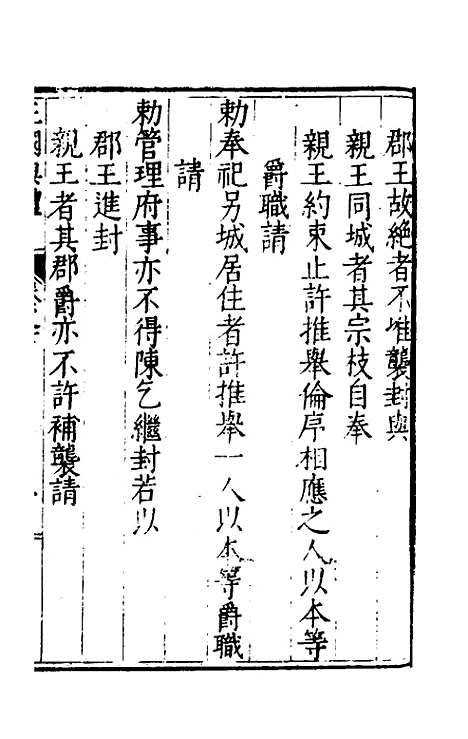 郡王故絶者不准襲封與
親王同城者其宗枝自奉
親王約束止許推舉倫序相應之人以本等
爵職請
勅奉祀另城居住者許推舉一人以本等爵職
請
勅管理府事亦不得陳乞繼封若以
郡王進封
親王者其郡爵亦不許補襲請
王國典禮